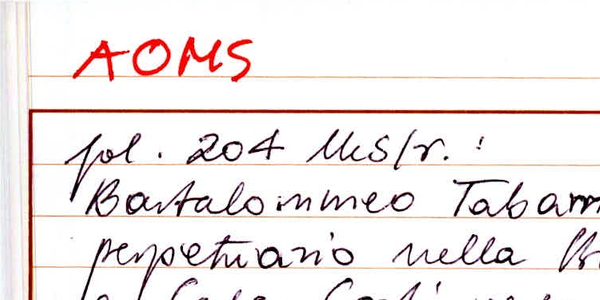 AOMS
fol. 204 Ms/r. :
Bartalommeo Tabarr
perpetuario nella